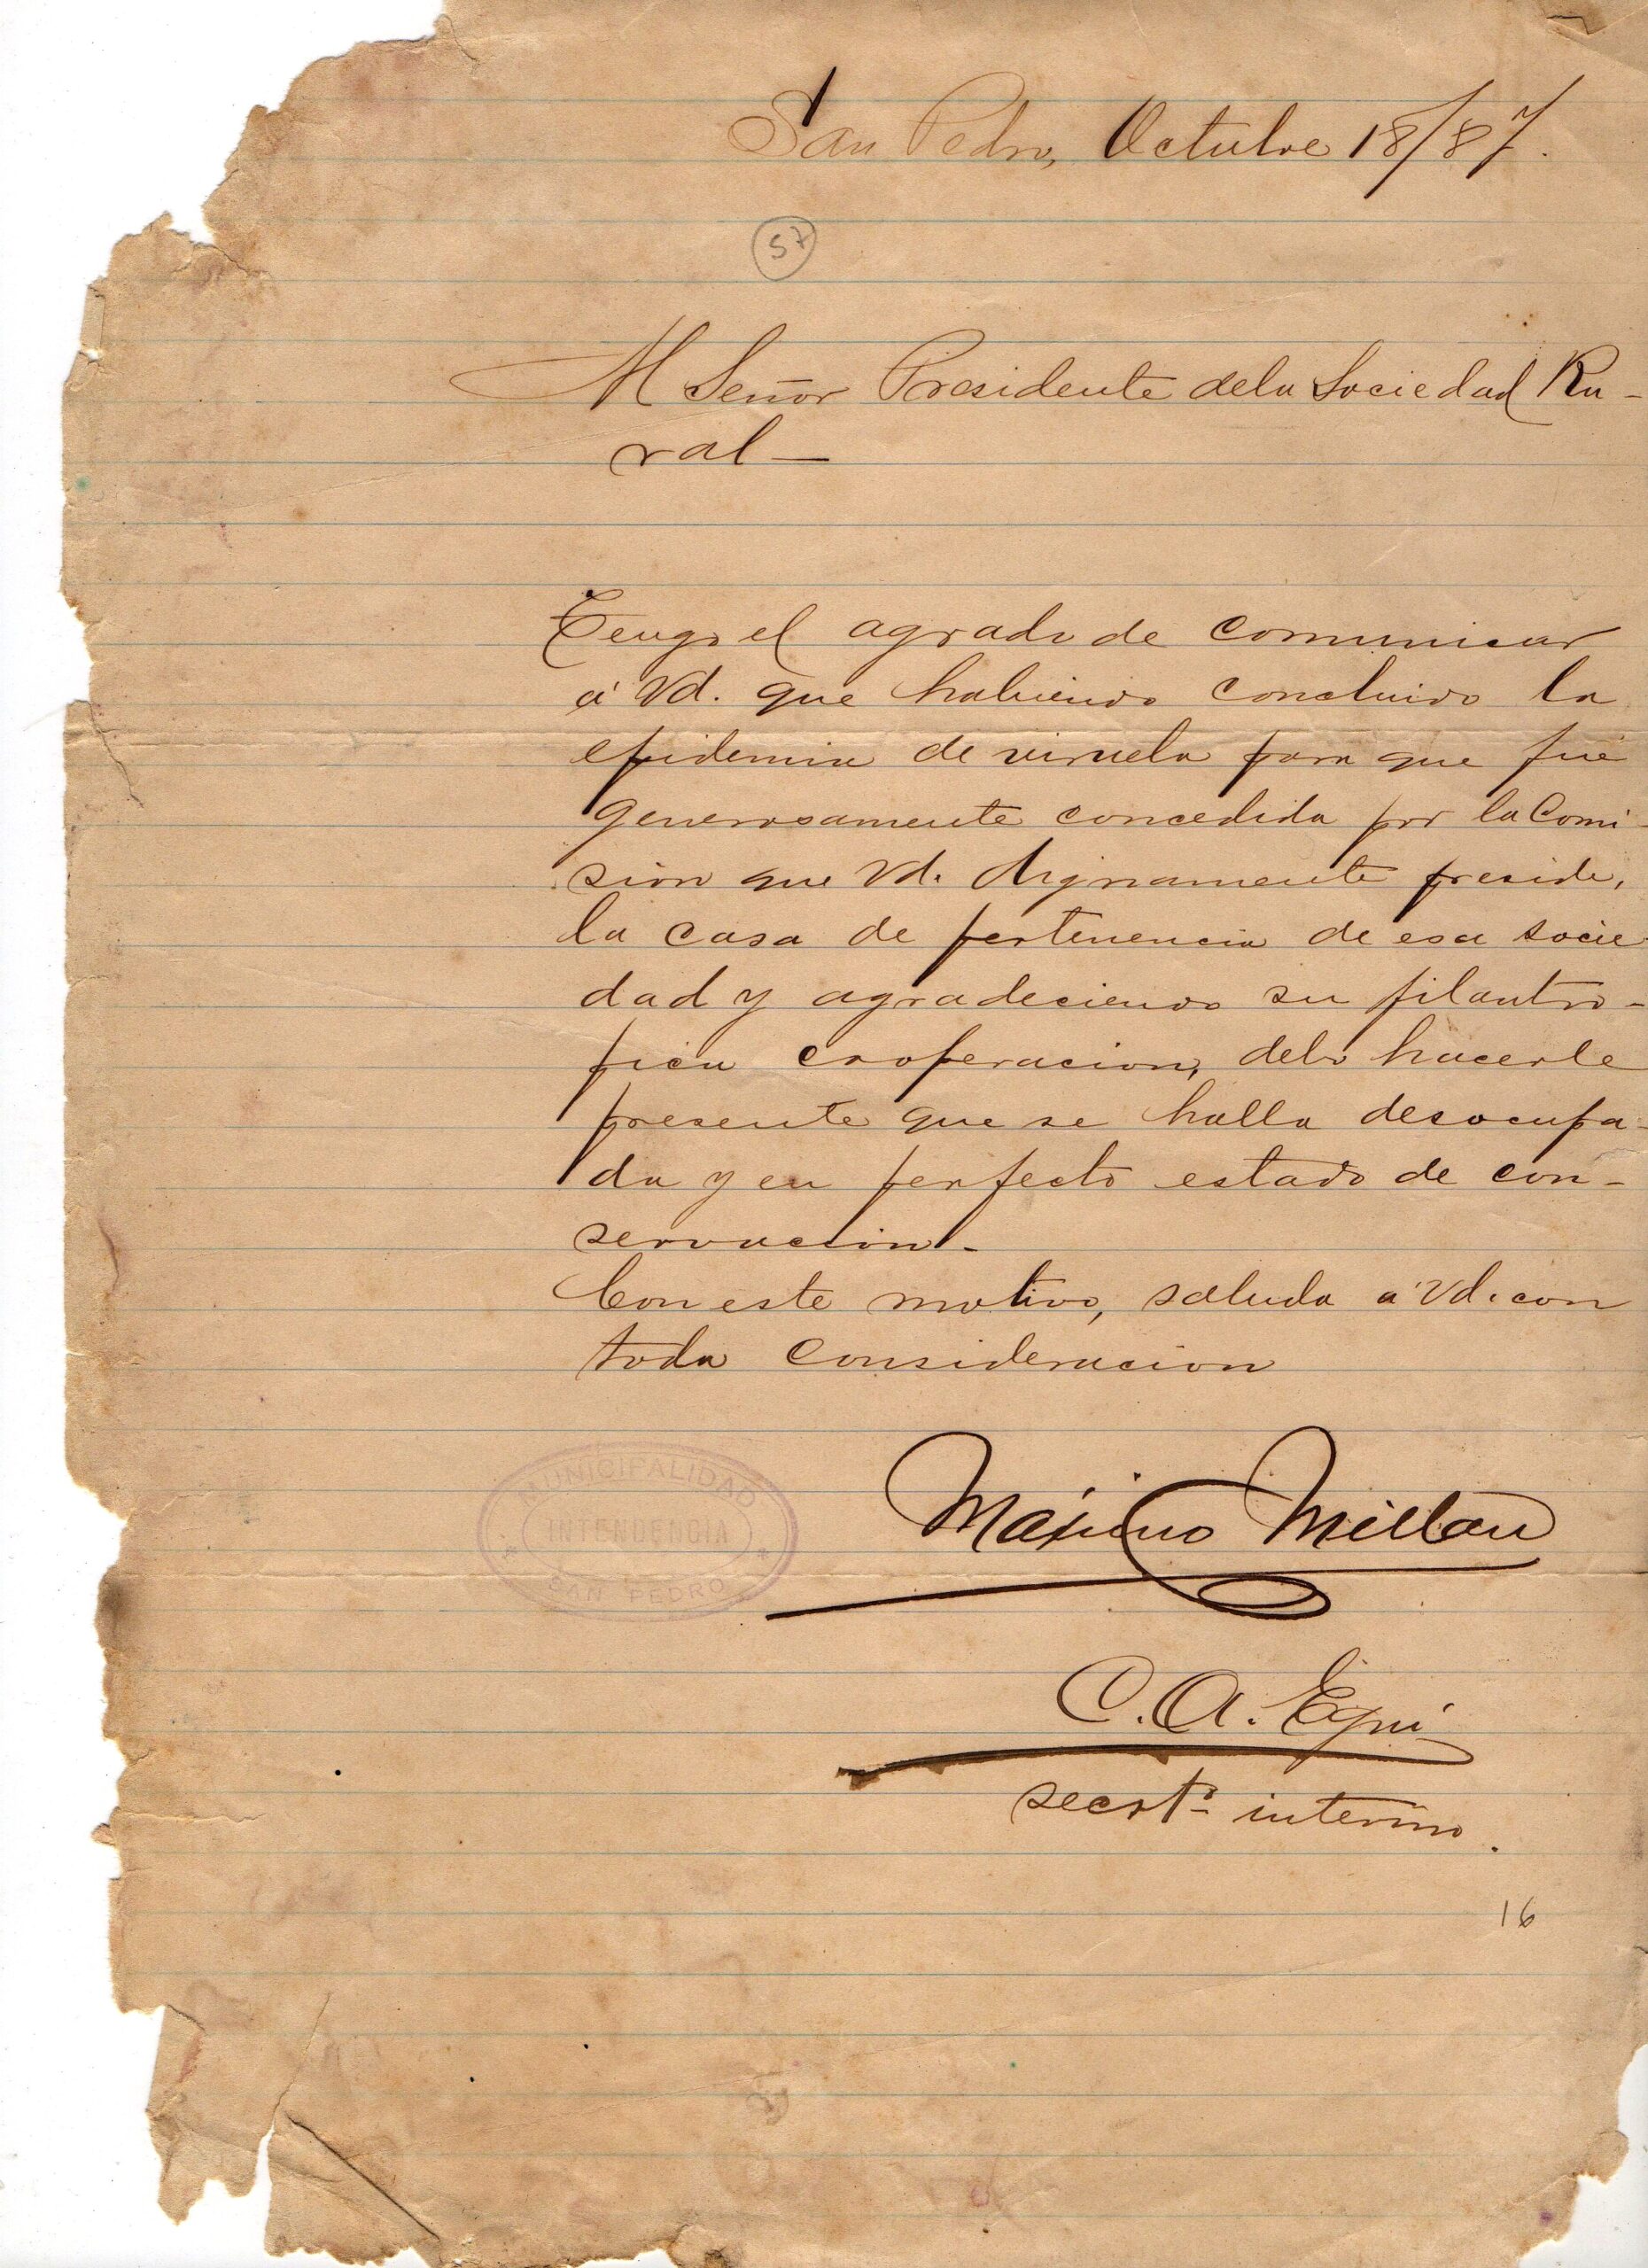 San Pedro, Octubre 18/87.
57
Al Señor Presidente dela Sociedad Ru-
ral-
Tengo el agrado de comunicar
á Vd. que habiendo concluido la
epidemia de viruela para que fué
generosamente concedida por la Comi-
sion que Vd. dignamente preside,
la casa de pertenencia de esa socie
dad y agradeciendo su filantro-
pica cooperacion, debo hacerle
presente que se halla desocupa-
da y en perfecto estado de con-
servacion-
Con este motivo, saluda á Vd. con
toda consideracion
Máximo Millan
MUNICIPALIDAD
INTENDENCIA
SAN PEDRO
C. A.
secrtº interino.
16